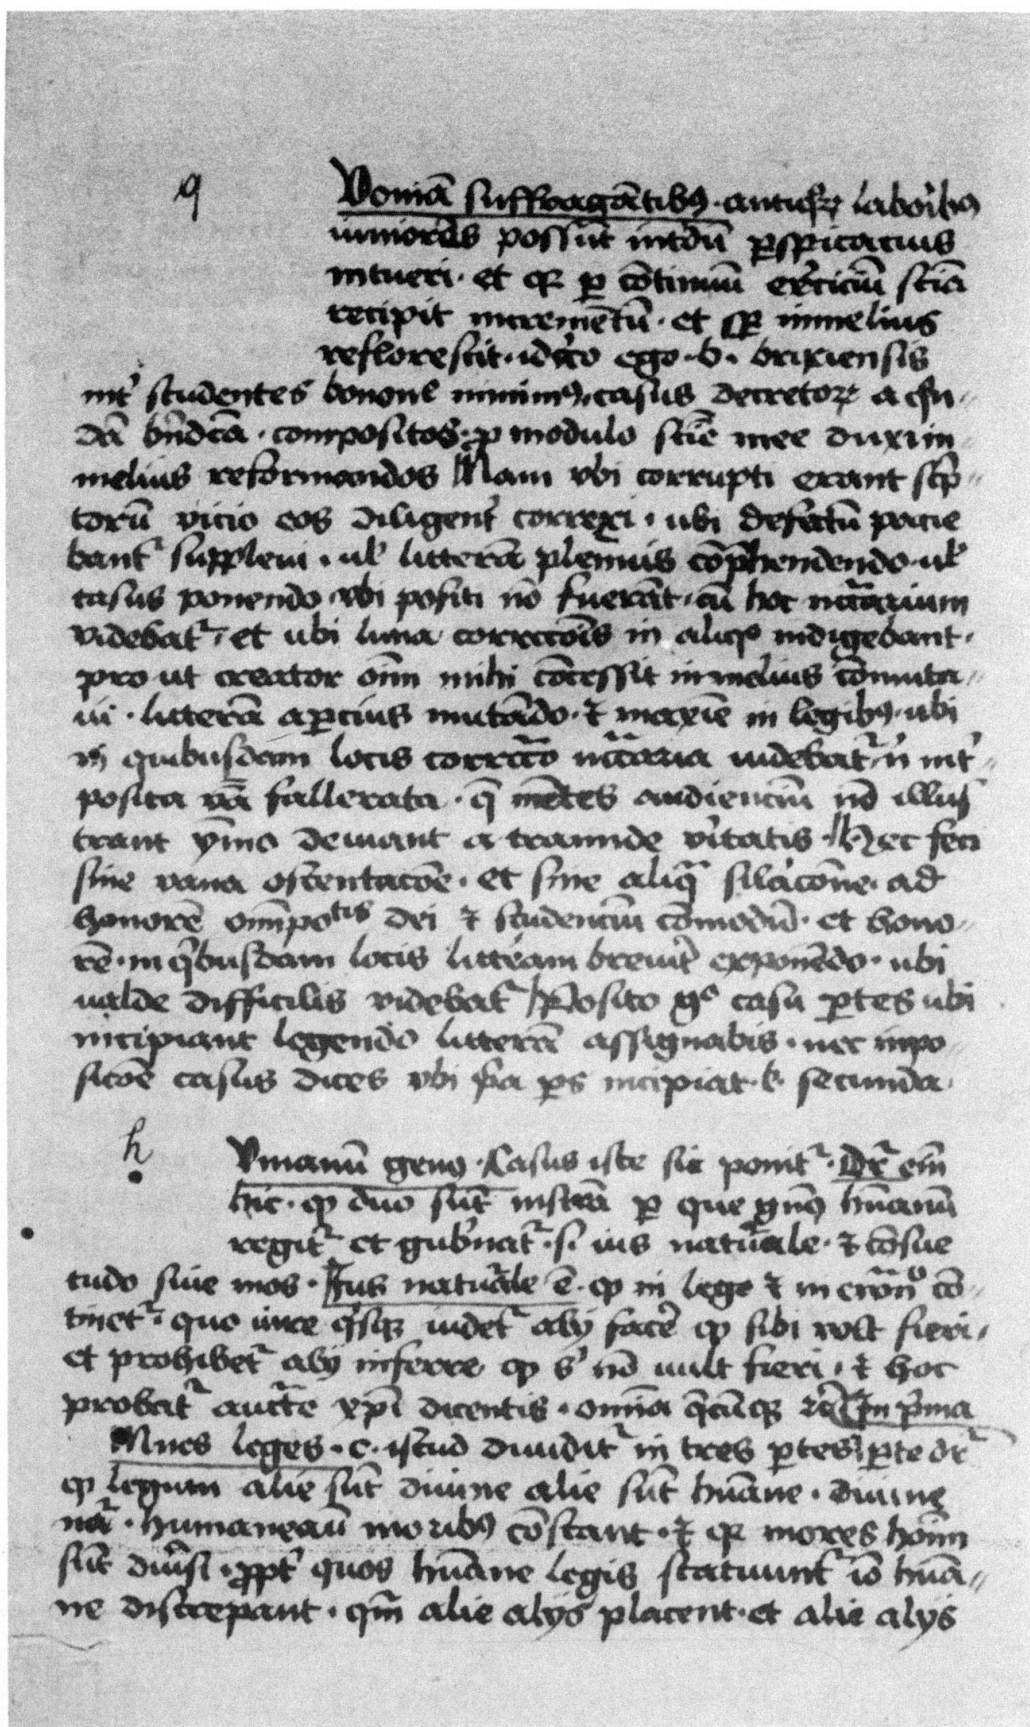 q
Voniā suffragātibꝰ · antiqꝝ laboribꝰ
iuniores possūt int̄dū ꝑspicacius
intueri · et qꝛ ꝑ cōtinuū ex̄ciciū sciā
recipit incremētū · et sꝑ inmelius
reflorescit · idc̄o ego · b · brixiensis
int̄ studentes bononie minimꝰ casus decretoꝝ a qͣn-
dā bn̄dcā · compositos · ꝓ modulo scīe mee duxi in
melius reformandos Nam vbi corrupti erant sc̄p-
torū vicio eos diligent̄ correxi · ubi defectū pacie
bant᷑ suppleui · ul̓ litterā plenius cōp̄hendendo · ul̓
casus ponendo vbi positi nō fuerāt · cū hoc nc̄c̄arium
videbat᷑ · et ubi lima correccōis in aliqͦ indigebant ·
pro ut creator oīm mihi cōcessit in melius cōmuta-
ui · litterā apercius mutādo · ⁊ maxīe in legibꝰ · ubi
in quibusdam locis correccō nc̄c̄aria uidebat᷑ n̄ int̄
posita fallerata · q̄ mētes audienciū nō illus
trant ymo deuiant a tramide v̄itatis · Hec feci
sine vana ostentacōe · et sine aliqͣ · ad
honorē omīpotꝭ dei ⁊ studenciū cōmodū · et hono-
rē · in qͥbusdam locis litteram breuit̄ exponēdo · ubi
ualde difficilis videbat᷑ Posito gͦ casu ꝑtes ubi
incipiant legendo litterā assignabis · nec inpo
sicōe casus dices vbi pͥa ꝑs incipiat · l̓ · secunda ·
h
Vmanū genꝰ · Casus iste sic ponit᷑ · Dr̄ em̄
hic · ꝙ duo sūt ꝑ que gn̄ꝰ hūanū
regit᷑ et gub̄nat᷑ · s · ius natural̄e · ⁊ cōsue
tudo siue mos · Jus naturale ē · ꝙ in lege ⁊ in cō-
tinet᷑ · quo iure qͥsqꝫ iubet᷑ alij facē ꝙ sibi volt fieri ·
et prohibet᷑ alij inferre ꝙ sͥ nō uult fieri · ⁊ hoc
probat᷑ auctͭe xp̄i dicentis · omīa q̄cūqꝫ ⁊c̄ In pͥma
Mnes leges · c · istud diuidit᷑ in tres ꝑtes ꝑte dr̄
ꝙ legum alie sūt diuine alie sūt hūane · diuine
nāͣ · humaneaū moribꝰ cōstant · ⁊ qꝛ mores hoīm
sūt diu̓si · ꝓpt̄ quos hūane legis statuunt᷑ iō hūa-
ne discrepant · qm̄ alie alijs placent · et alie alijs